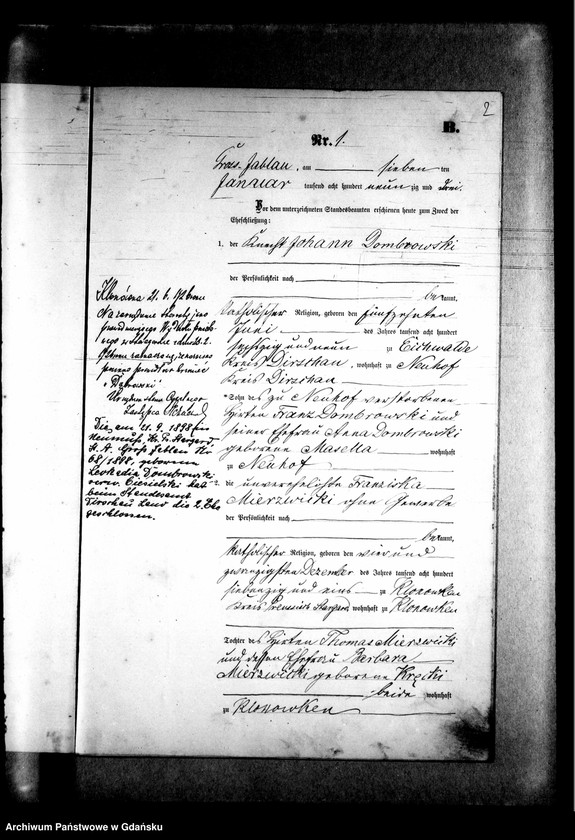 2
B.
Nr. 1.
Gross Jablau, am sieben ten
Januar tausend acht hundert neun zig und drei.
Vor dem unterzeichneten Standesbeamten erschienen heute zum Zweck der
Eheschließung:
1. der Knecht Johann Dombrowski
der Persönlichkeit nach
be kannt,
katholischer Religion, geboren den fünfzehnten
Juni des Jahres tausend acht hundert
sechszig und neun zu Eichwalde
Kreis Dirschau, wohnhaft zu Neuhof
Kreis Dirschau
Sohn des zu Neuhof verstorbenen
Hirten Franz Dombrowski und
seiner Ehefrau Anna Dombrowski
geborene Masella wohnhaft
zu Neuhof
2. die unverehelichte Franziska
Mierzwicki ohne Gewerbe
der Persönlichkeit nach
be kannt,
katholischer Religion, geboren den vier und
zwanzigsten Dezember des Jahres tausend acht hundert
siebenzig und eins zu Klonowken
Kreis Preussisch Stargard, wohnhaft zu Klonowken
Tochter des Hirten Thomas Mierzwicki
und dessen Ehefrau Barbara
Mierzwicki geborene Kręcki
beide wohnhaft
zu Klonowken
21. 6.
"Dąbrowski"
Die am 21. 9. 1898 in
Neumuss, Kr. Pr. Stargard
St. A. Gross Jablau Nr.
68/1898, geborene
Leokadia Dombrowski
verw. Cieselski hat
beim Standesamt
Dirschau Land die 2. Ehe
geschlossen.
Archiwum Państwowe w Gdańsku